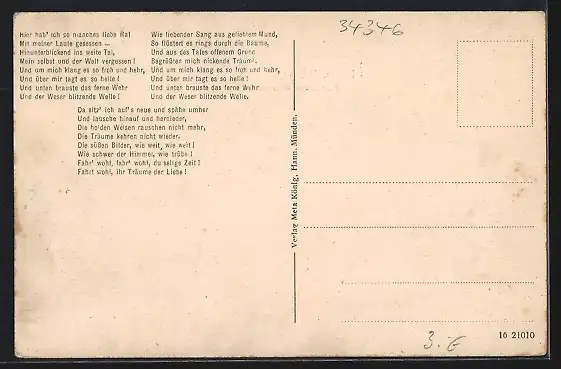 Hier hab' ich so manches liebe Mal
Mit meiner Laute gesessen —
Hinunterblickend ins weite Tal,
Mein selbst und der Welt vergessen!
Und um mich klang es so froh und hehr,
Und über mir tagt es so helle!
Und unten brauste das ferne Wehr
Und der Weser blitzende Welle!
Wie liebender Sang aus geliebtem Mund,
So flüstert es rings durch die Bäume,
Und aus des Tales offenem Grund
Begrüßten mich nickende Träume.
Und um mich klang es so froh und hehr,
Und über mir tagt es so helle!
Und unten brauste das ferne Wehr
Und der Weser blitzende Welle.
Da sitz' ich auf's neue und spähe umher
Und lausche hinauf und hernieder,
Die holden Weisen rauschen nicht mehr,
Die Träume kehren nicht wieder.
Die süßen Bilder, wie weit, wie weit!
Wie schwer der Himmel, wie trübe!
Fahr' wohl, fahr' wohl, du selige Zeit!
Fahrt wohl, ihr Träume der Liebe!
Verlag Meta König, Hann. Münden.
34346
3.-E
16 21010